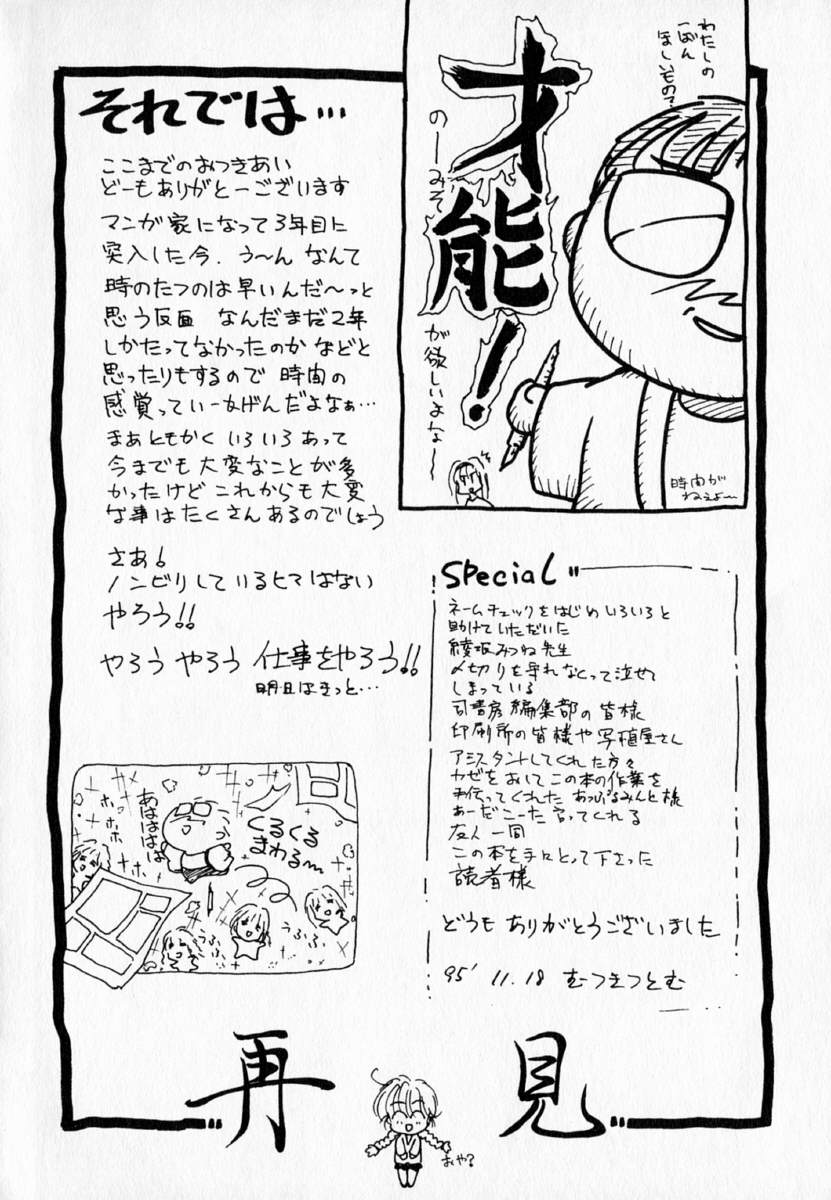 わたしの
一ばん
ほしいもの?
才能!
のーみそ
が欲しいよな〜
時間が
ねぇよ〜
それでは…
ここまでのおつきあい
どーもありがとーございます
マンガ家になって3年目に
突入した今、う〜ん なんて
時のたつのは早いんだ〜っと
思う反面 なんだまだ2年
しかたってなかったのか などと
思ったりもするので 時間の
感覚っていーかげんだよなぁ…
まあともかく いろいろあって
今までも大変なことが多
かったけど これからも大変
な事はたくさんあるのでしょう
さあ!
ノンビリしているヒマはない
やろう!!
やろう やろう 仕事をやろう!!
明日はきっと…
Special
ネームチェックをはじめ いろいろと
助けていただいた
綾坂みつね先生
〆切りを守れなくって泣せて
しまっている
司書房編集部の皆様
印刷所の皆様や写植屋さん
アシスタントしてくれた方々
カゼをおして この本の作業を
手伝ってくれた あっぷるみんと様
あーだこーだ言ってくれる
友人一同
この本を手にとって下さった
読者様
どうも ありがとうございました
95' 11.18 むつきつとむ
ホホホ
あはははは
くるくる
まわる〜
うふふ
うふふ
再見
おや?